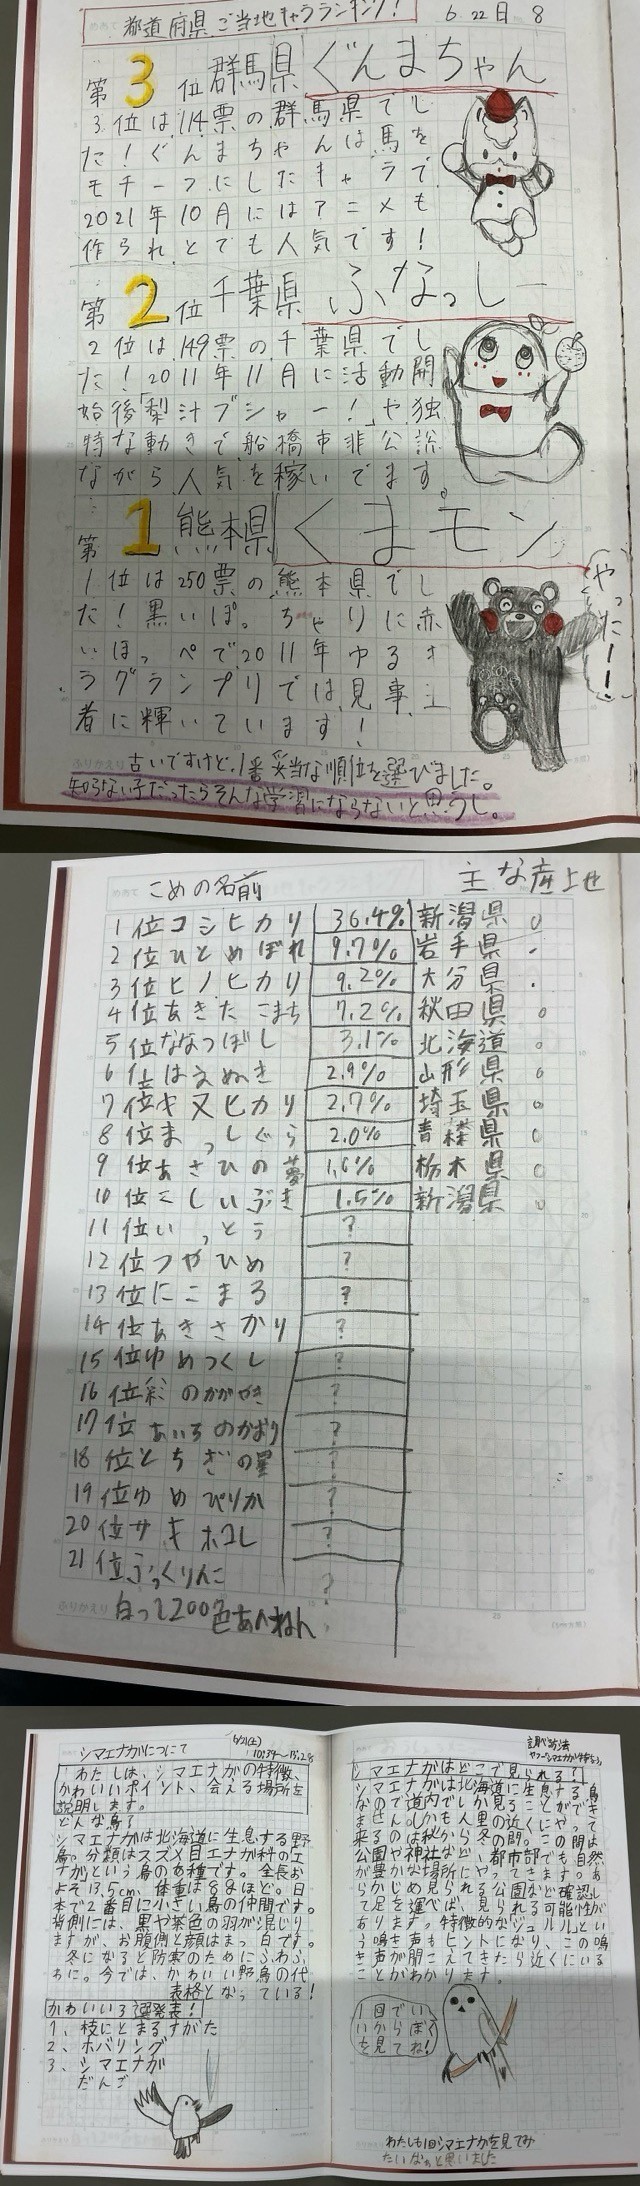 都道府県ご当地キャラランキング!
6.22日 8
第3位 群馬県 ぐんまちゃん
3位は114票の群馬県でし
た!ぐんまちゃんは馬を
モチーフにしたキャラで
2021年10月にはアニメも
作られ、とでも人気です!
第2位 千葉県 ふなっしー
2位は149票の千葉県でし
た!2011年11月に活動開
始後「梨汁ブシャー!」や独
特な動きで船橋市非公認
ながら人気を稼いでます。
第1位 熊本県 くまモン
1位は250票の熊本県でし
た!黒いぽっちゃりに赤
いほっぺで2011年ゆるキ
ラグランプリでは見事、王
者に輝いています!
やったー!
古いですけど、1番妥当な順位を選びました。
知らない子だったらそんな学習にならないと思うし。
こめの名前
主な産地
1位コシヒカリ 36.4% 新潟県
2位ひとめぼれ 9.7% 岩手県
3位ヒノヒカリ 9.2% 大分県
4位あきたこまち 7.2% 秋田県
5位ななつぼし 3.1% 北海道
6位はえぬき 2.9% 山形県
7位キヌヒカリ 2.7% 埼玉県
8位まっしぐら 2.0% 青森県
9位あさひの夢 1.6% 栃木県
10位こしいぶき 1.5% 新潟県
11位いっとう ?
12位つやひめ ?
13位にこまる ?
14位あきさかり ?
15位ゆめつくし ?
16位彩のかがやき ?
17位あいちのかおり ?
18位とちぎの星 ?
19位ゆめぴりか ?
20位サキホコレ ?
21位ふっくりんこ ?
白って200色あんねん
シマエナガについて
6/21(土)
10:34〜15:28
わたしは、シマエナガの特徴、
かわいいポイント、会える場所を
説明します。
どんな鳥?
シマエナガは北海道に生息する野
鳥。分類はスズメ目エナガ科のエ
ナガという鳥の亜種です。全長お
よそ13.5cm、体重は8gほど。日
本で2番目に小さい鳥の仲間です。
背側には、黒や茶色の羽が混じり
ますが、お腹側と顔はまっ白です。
冬になると防寒のためにふわふ
わに。今では、かわいい野鳥の代
表格となっている!
かわいい3選発表!
1、枝にとまるすがた
2、ホバリング
3、シマエナガ
だんご
調べ方法
シマエナガはどこで見られる?
シマエナガは北海道に生息する鳥
なので道内でしか見ることができ
ません。しかも人里の近くにやって
来るのは秋から冬の間。この間は
公園や神社など、都市部でも自然
が豊かな場所にやってきます。あ
らかじめ見られる公園など確認し
て足を運べば、見られる可能性が
あります。特徴的な「ジュルリ」とい
う鳴き声もヒントになり、この鳴
き声が聞こえてきたら近くにいる
ことがわかります。
1回でい
いからぼく
を見てね!
わたしも1回シマエナガを見てみ
たいなぁと思いました